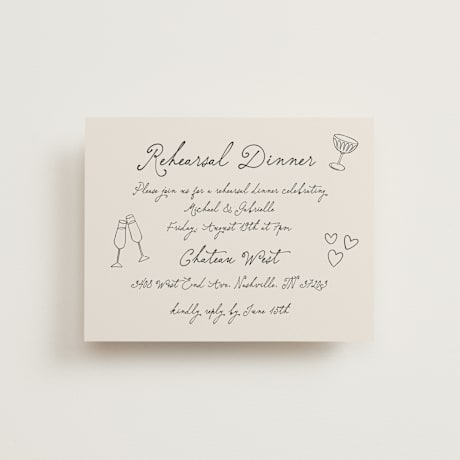 Rehearsal Dinner
Please join us for a rehearsal dinner celebrating
Michael & Gabrielle
Friday, August 19th at 7pm
Chateau West
3408 West End Ave. Nashville, TN 37203
kindly reply by June 15th